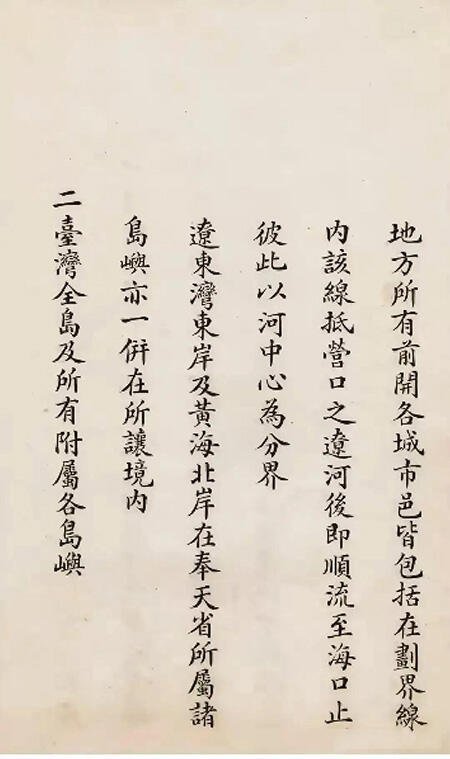 地方所有前開各城市邑皆包括在劃界線
內該線抵營口之遼河後即順流至海口止
彼此以河中心為分界
遼東灣東岸及黃海北岸在奉天省所屬諸
島嶼亦一併在所讓境內
二臺灣全島及所有附屬各島嶼